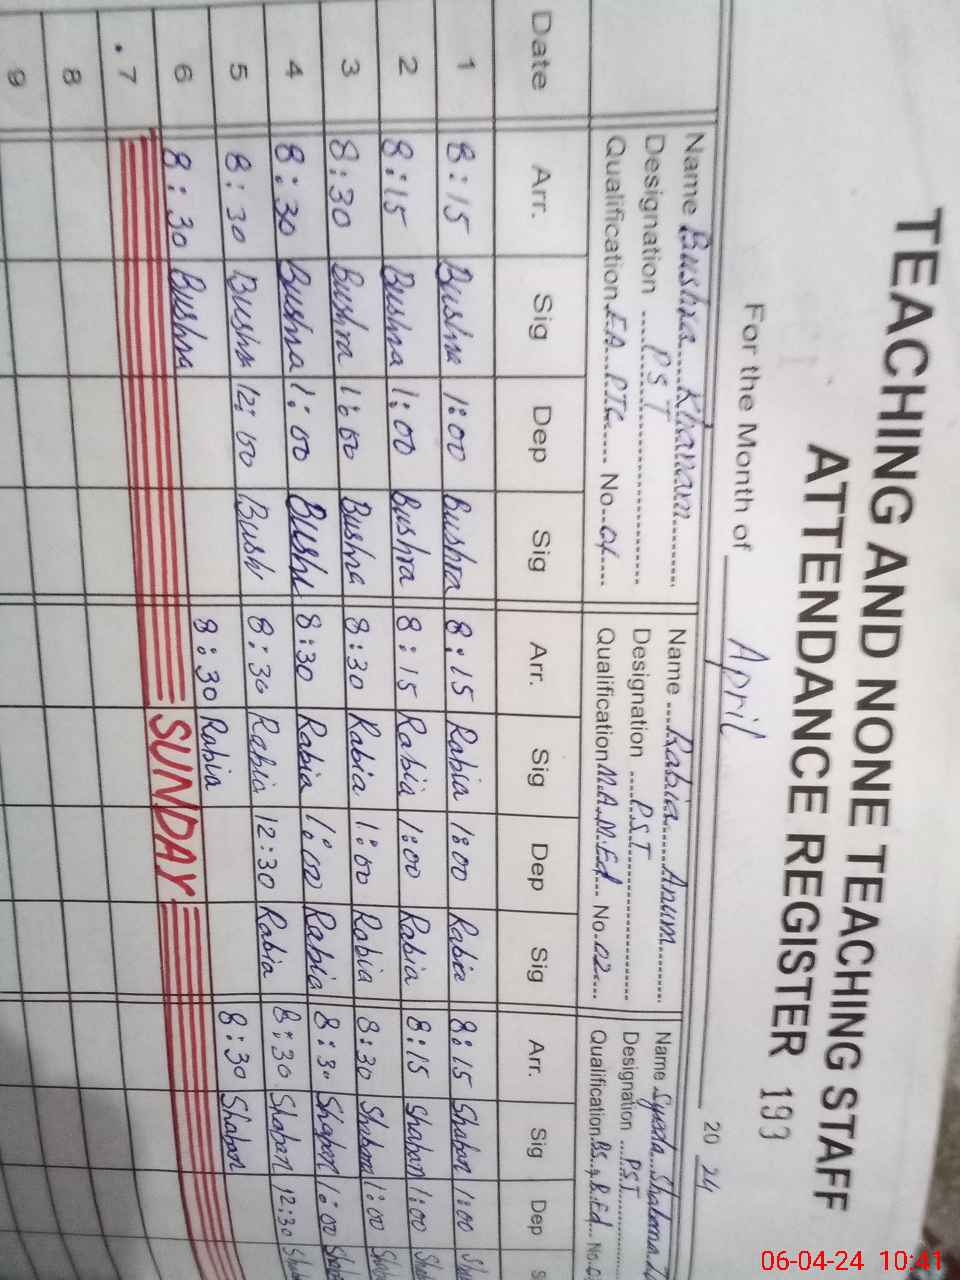 TEACHING AND NONE TEACHING STAFF
ATTENDANCE REGISTER 193
For the Month of April 20 24
Name Bushra Khanam Name Rabia Anum Name Syeda Shabana
Designation P.S.T Designation P.S.T Designation P.S.T
Qualification F.A PTC No 01 Qualification M.A, M.Ed No. 02 Qualification BS, B.Ed No.
Date Arr. Sig Dep Sig Arr. Sig Dep Sig Arr. Sig Dep S
1 8:15 Bushra 1:00 Bushra 8:15 Rabia 1:00 Rabia 8:15 Shaban 1:00 Sh
2 8:15 Bushra 1:00 Bushra 8:15 Rabia 1:00 Rabia 8:15 Shaban 1:00 Sh
3 8:30 Bushra 1:00 Bushra 8:30 Rabia 1:00 Rabia 8:30 Shaban 1:00 Shab
4 8:30 Bushra 1:00 Bushr 8:30 Rabia 1:00 Rabia 8:30 Shaban 1:00 Shab
5 8:30 Bushr 12:00 Bush 8:30 Rabia 12:30 Rabia 8:30 Shaban 12:30 Shab
6 8:30 Bushra 8:30 Rabia 8:30 Shaban
7 SUNDAY
8
9
06-04-24 10:41